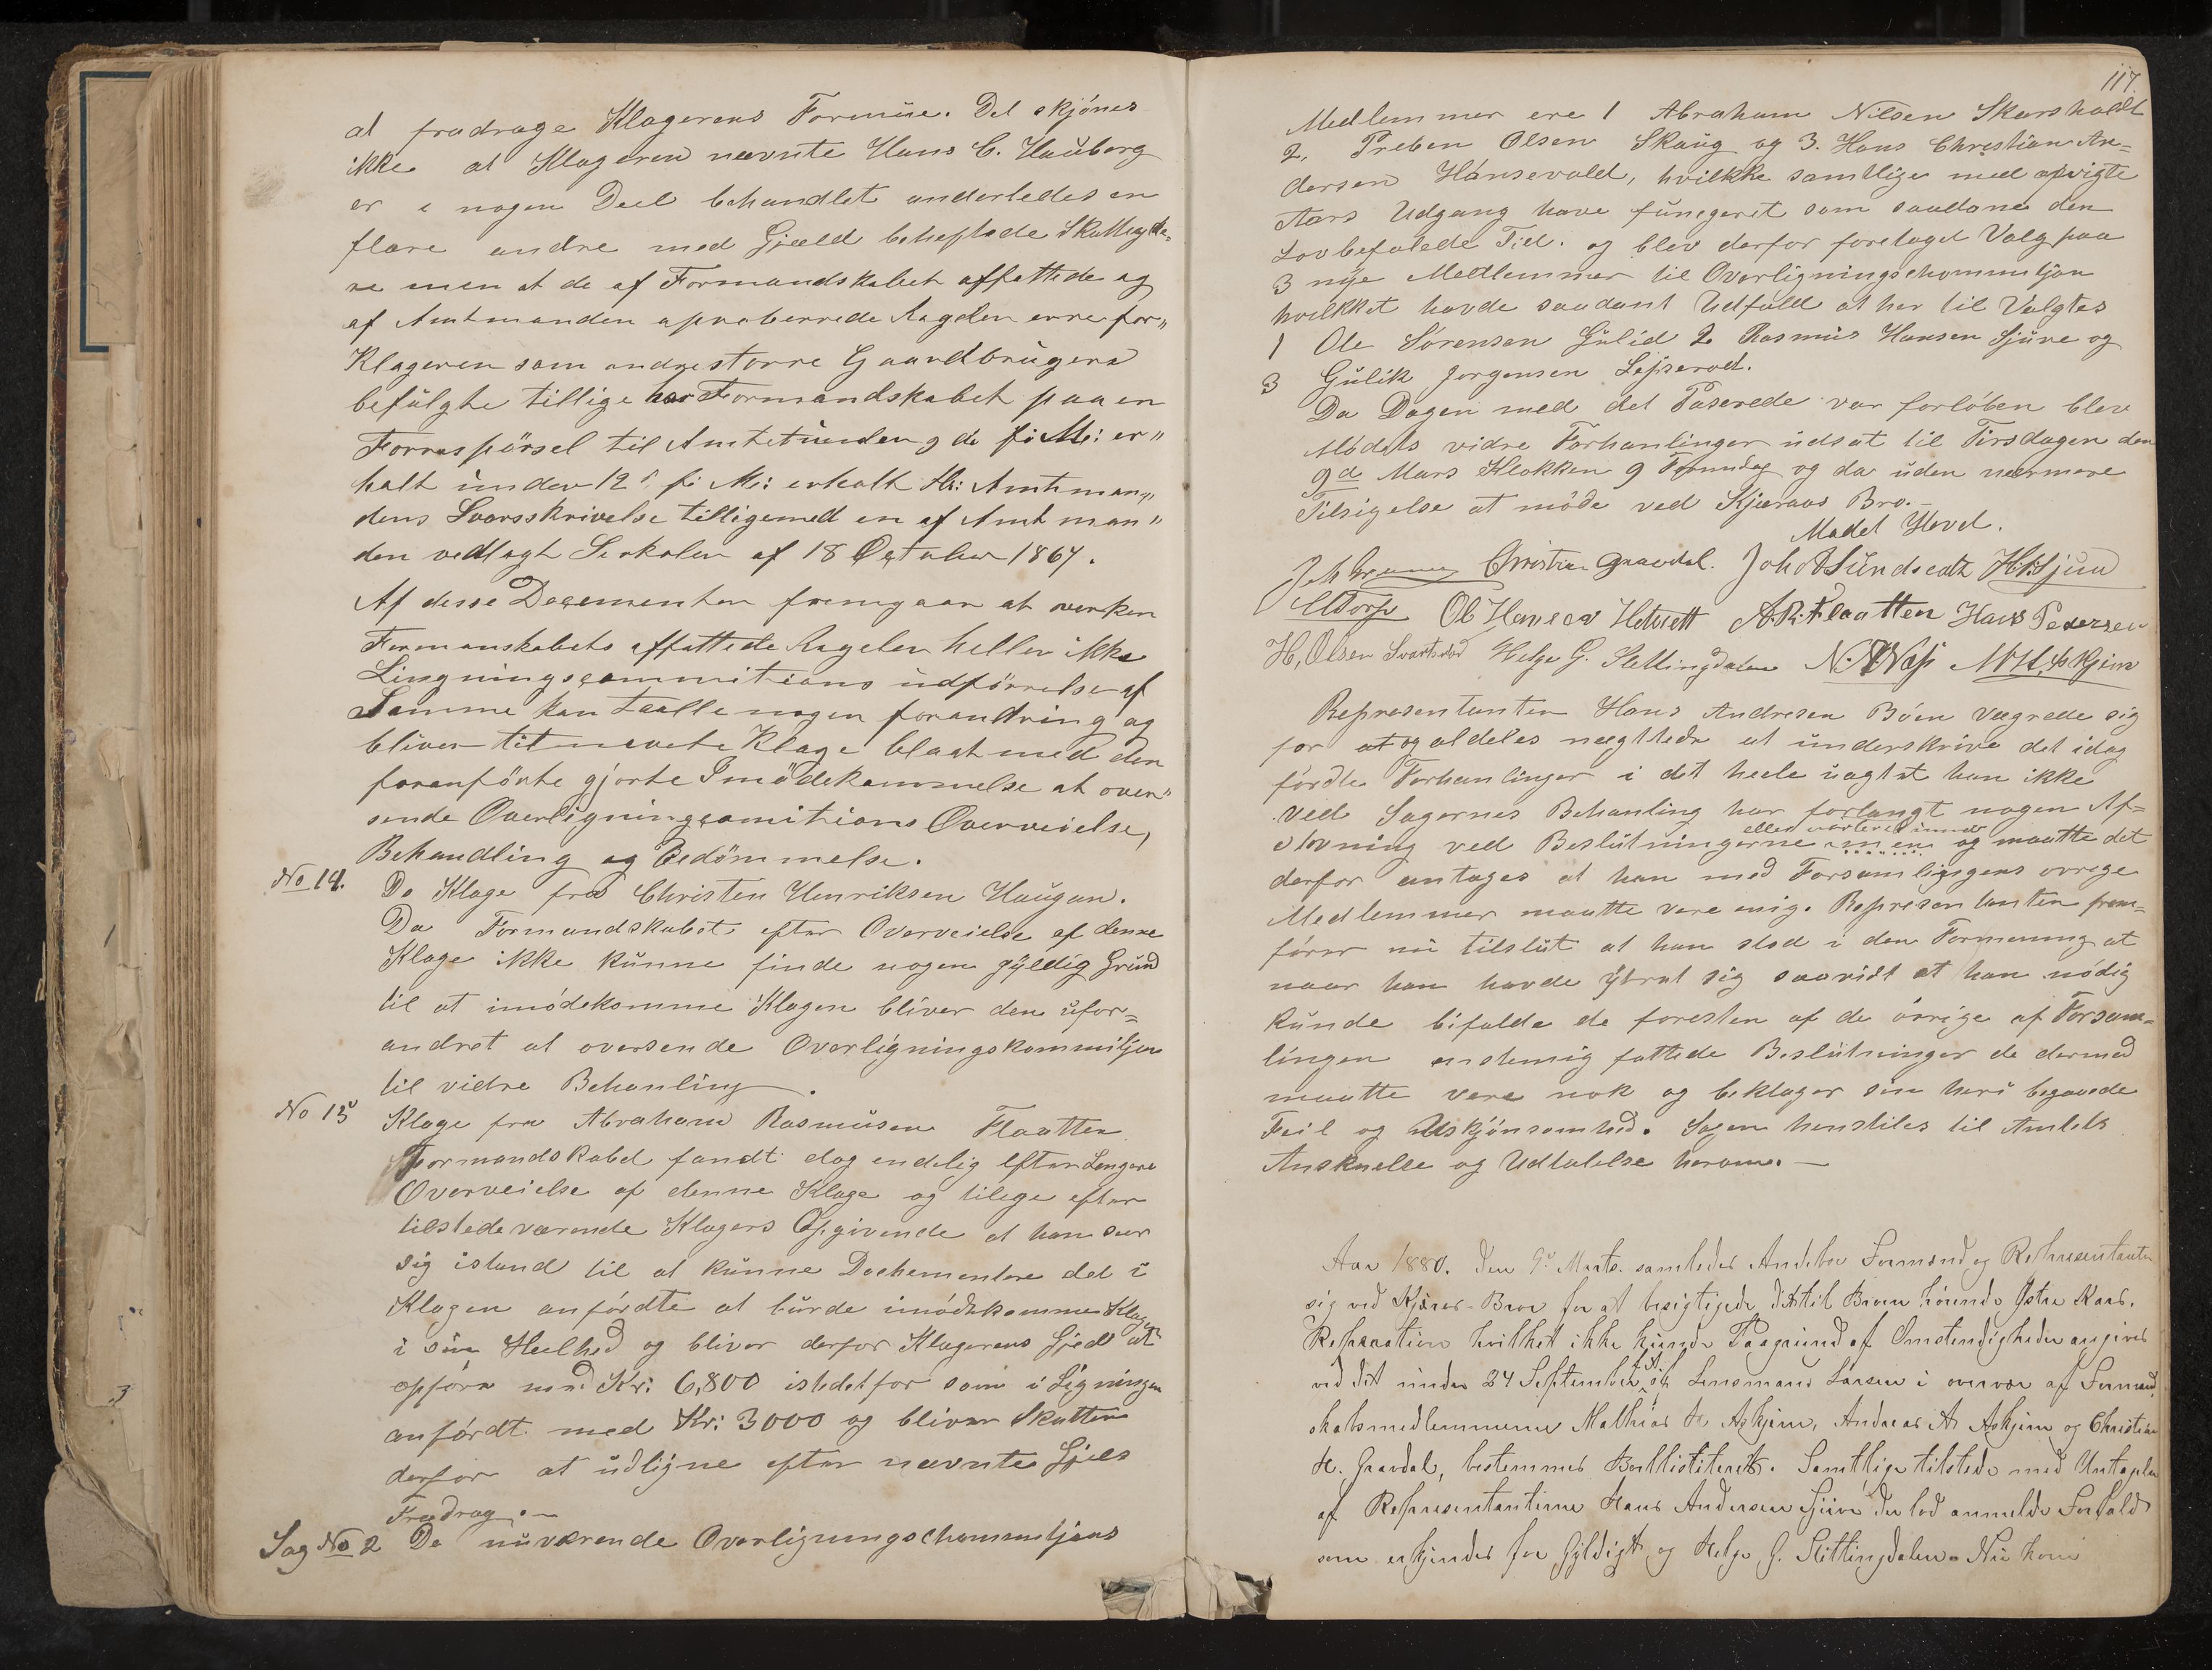 at fradrage Klagerens Formue. Det skjönes
ikke at Klageren nævnte Hans C. Hauberg
er i nogen Deel behandlet anderledes en
flere andre med Gjæld beheftede Skatteyde„
re men at de af Formandskabet affattede og
af Amtmanden aproberrede Regelen erre for„
Klageren som andre större Gaardbrugere
befulgte tillige har Formandskabet paa en
Forrespörsel til Amtet under 9de f: M: er„
halt under 12te f: M: erholt Hr: Amtman„
dens Svarsskrivelse tilligemed en af Amtman„
den vedlagt Serkuler af 18 October 1867.
Af desse Documenter fremgaar at verken
Formanskabets affattede Regeler heller ikke
Lingningscommitions udförrelse af
Samme kan taalle nogen forandring og
bliver til nævnte Klage blaat med den
foranförte gjorte Imödekommelse at over„
sende Overligningscomitions Overveielse,
Behandling og Bedömmelse.
No 14. Do Klage fra Christen Henriksen Haugan.
Da Formandskabet efter Overveielse af denne
Klage ikke kunne finde nogen gyldig Grund
til at imödekomme Klagen bliver den ufor=
andret at oversende Overligningskommitjen
til vidre Behanling.
No 15 Klage fra Abraham Rasmusen Flaatten
Formandskabet fandt dog endelig efter Lengere
Overveielse af denne Klage og tilege efter
tilstedeværende Klagers Opgivende at han saer
sig istand til at kunne Dochementere det i
Klagen anfördte at burde imödekomme Klagen
i sin Heelhed og bliver derfor Klagerens Gjed at
opföre med Kr: 6,800 istedetfor som i Ligningen
anfördt med Kr: 3000 og bliver Skatten
derfor at udligne efter nævnte Gjels
Fradrag.—
Sag No 2 De nuværende Overligningschommitjons
117.
Medlemmer ere 1 Abraham Nilsen Skarsholdt
2, Preben Olsen Skaug og 3. Hans Christian An=
dersen Hánsevald, hvilkke samtlige med afvigte
Aars Udgang have fungeret som saadane den
Lovbefalede Tid. og blev derfor foretaget Valg paa
3 nye Medlemmer til Overligningschommitjon
hvilkket havde saadant Udfald at her til Valgtes
1 Ole Sörensen Gulid 2 Rasmus Hansen Sjuve og
3 Gulik Jörgensen Lejserod.
Da Dagen med det Paserede var forlöben blev
Mödets vidre Forhanlinger udsat til Tirsdagen den
9de Mars Klokken 9 Formidag og da uden nærmere
Tilsigelse at möde ved Kjæraas Bro.—
Mödet Hævd.
Christian Gravdal. Joh A Sundseth
Ol Hansen Hotvett A.R. Flaatten Hans Pedersen
H, Olsen Svartsrod Helge G. Slettingdalen
Representanten Hans Andresen Böen vægrede sig
for at og aldeles nægttede at underskrive det idag
fördte Forhanlinger i det heele uagtet han ikke
ved Sagernes Behanling har forlangt nogen Af=
stovning ved Beslutningerne men og maatte det
derfor antages at han med Forsamligngens ovrege
Medlemmer maatte vere enig. Represontanten frem=
förer nu tilslut at han stod i den Formening at
naar han havde ytrat sig saavidt at han nödig
kunde bifalde de foresten af de övrige af Forsam=
lingen enstemig fattede Beslutninger de dermed
maatte vere nok og beklager sin heri begaaede
Feil og Uskjönsomhed. Sagen henstiles til Amtets
Anskuelse og Udtalelse herom.—
Aar 1880. den 9de Marts. samledes Andebo Formænd og Representanter
sig ved Kjæraas-Broe for at besigtigede dettil Broen hörende Östre Kaars.
Reparation hvilket ikke kunde Paagrund af Omstendigheder angives
ved det under 24 September f. A. af Lensmand Larsen i overvær af Formand,
skabsmedlemmerne Mathias H Askjem, Andreas A. Askjem og Christian
H. Gravdal, bestemmes. Samtlige tilstede med Untagelse
af Representanterne Hans Andersen Sjuve der lod anmelde Forfald
som erkjendes for Gyldigt og Helge G. Slettingdalen. Nu kom